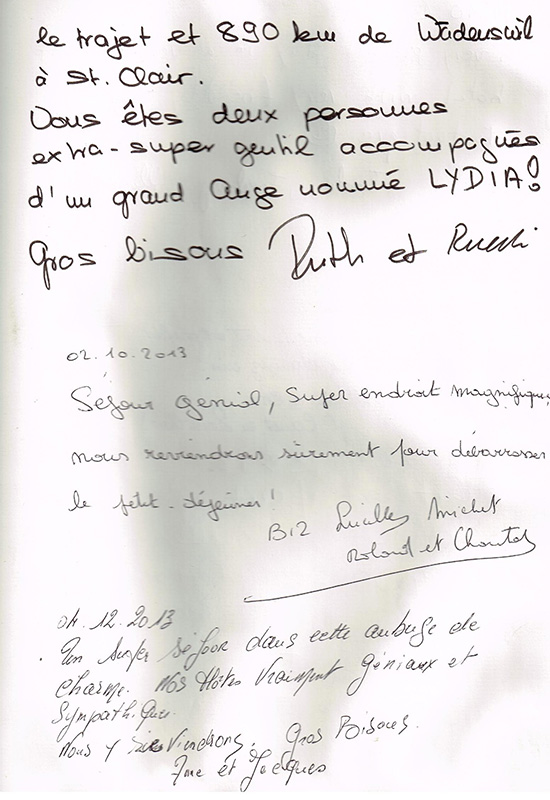 le trajet et 890 km de Wädenswil
à St. Clair.
Vous êtes deux personnes
extra-super gentil accompagnés
d'un grand Ange nommé LYDIA!
Gros bisous Ruth et Ruedi
02.10.2013
Séjour génial, super endroit magnifique,
nous reviendrons sûrement pour débarrasser
le petit-déjeuner!
Biz Lucille, Michel
Roland et Chantal
04.12.2013
Un super séjour dans cette auberge de
charme. Nos Hôtes vraiment géniaux et
Sympathiques.
Nous y reviendrons. Gros Bisous.
et Jacques